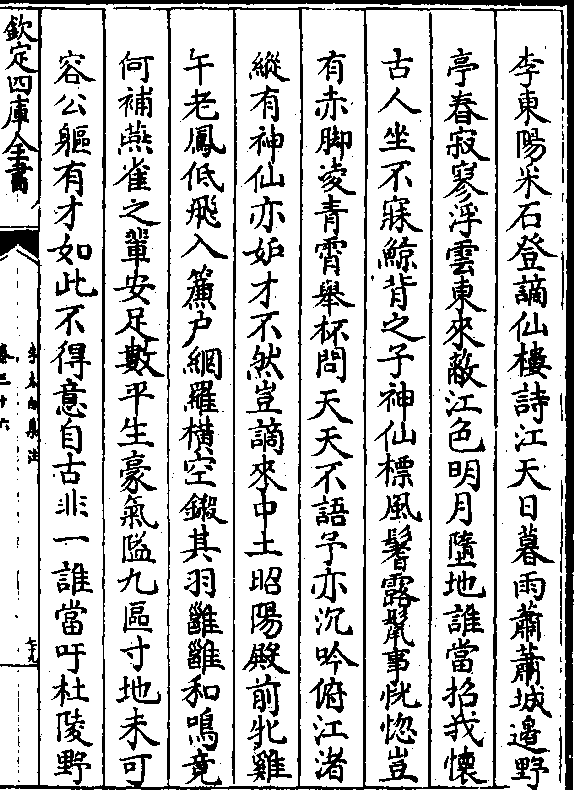 李東陽采石登謫仙樓詩江天日暮雨蕭蕭城邊野
亭春寂寥浮雲東來蔽江色明月墮地誰當招我懷
古人坐不寐鯨背之子神仙標風鬟露鬣事恍惚豈
有赤脚凌青霄舉杯問天天不語予亦沉吟俯江渚
縱有神仙亦妒才不然豈謫來中土昭陽殿前牝雞
午老鳳低飛入簾户網羅横空鍛其羽雝雝和鳴竟
何補燕雀之輩安足數平生豪氣隘九區寸地未可
容公軀有才如此不得意自古非一誰當吁杜陵野
欽定四庫全書
李太白集注
卷三十六